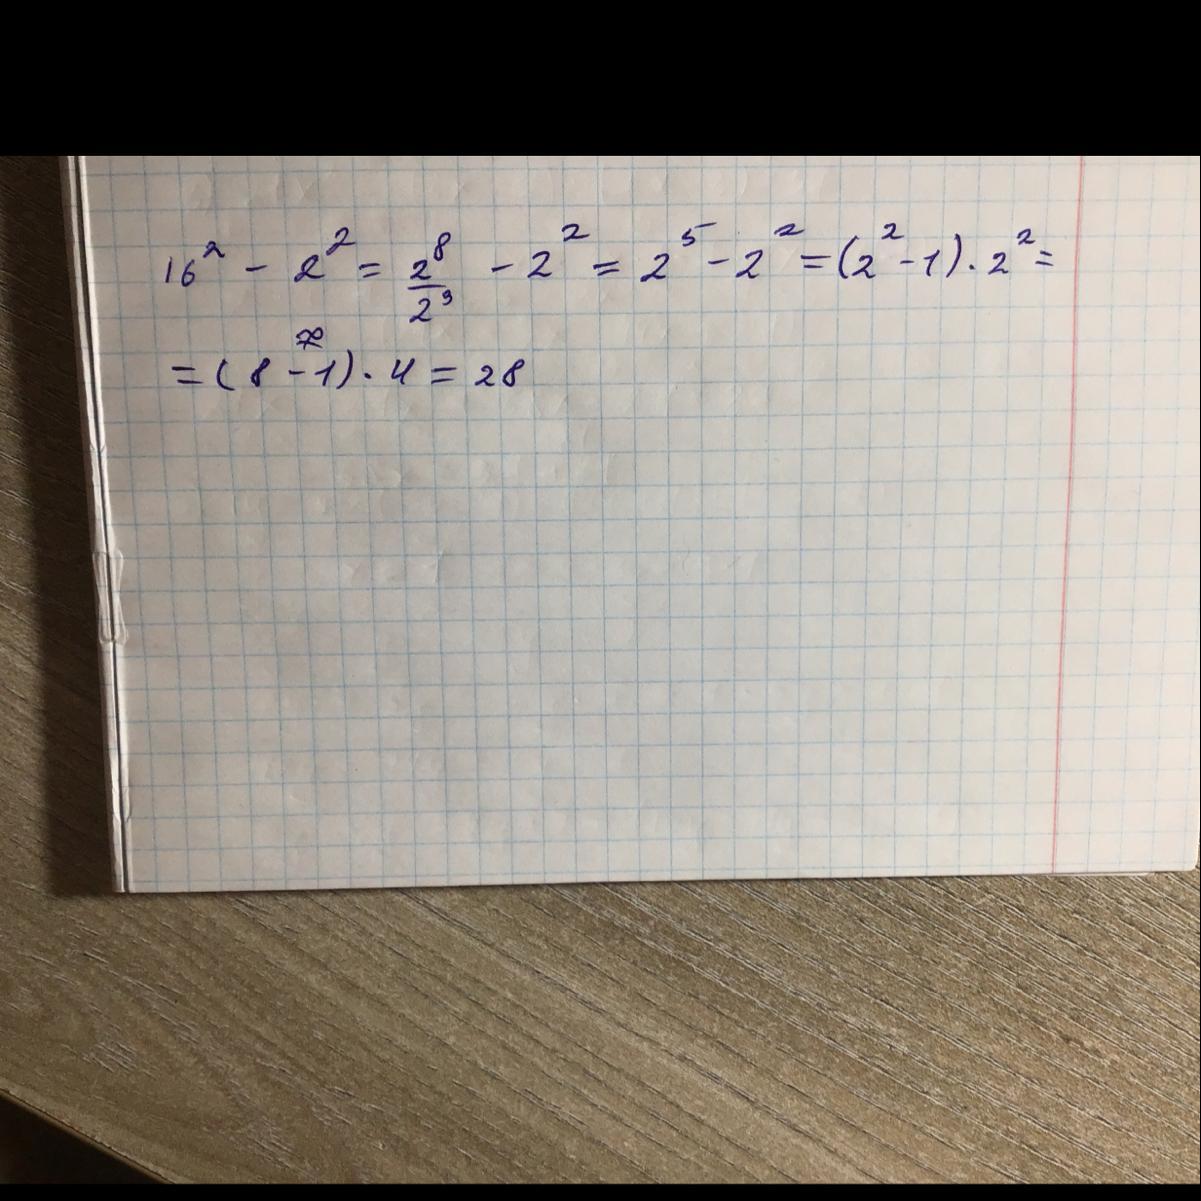 16² - 2² = 2⁸/2³ - 2² = 2⁵ - 2² = (2² - 1) · 2² =
= (8 - 1) · 4 = 28